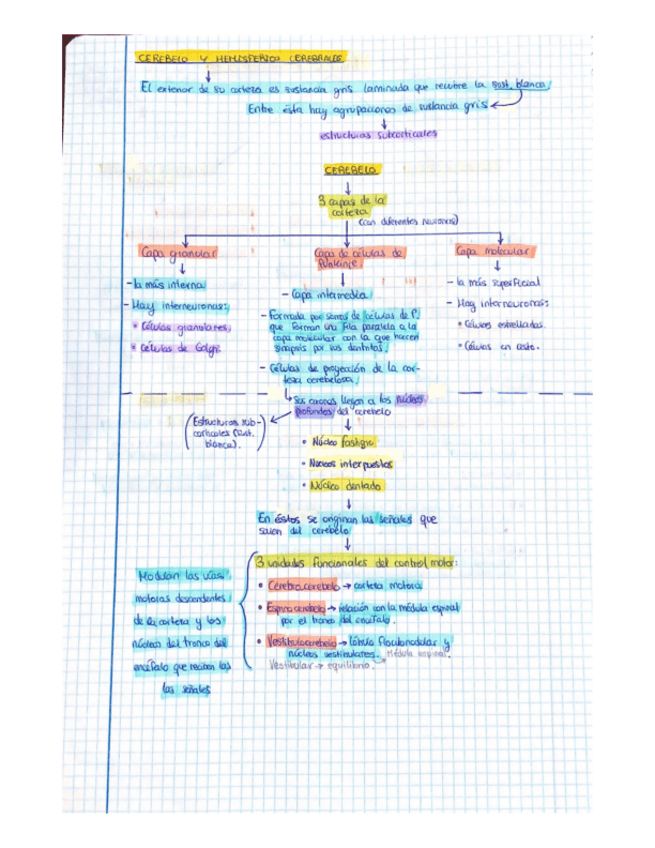 CEREBELO Y HEMISFERIOS CEREBRALES
El exterior de su corteza es sustancia gris laminada que recubre la sust. blanca.
Entre ésta hay agrupaciones de sustancia gris
estructuras subcorticales
CEREBELO
3 capas de la
corteza
(con diferentes neuronas)
Capa granular
- la más interna
- Hay interneuronas:
• Células granulares.
• Células de Golgi.
Capa de células de
Purkinje.
- Capa intermedia
- Formada por somas de células de P.
que forman una fila paralela a la
capa molecular con la que hacen
sinapsis por sus dendritas.
- Células de proyección de la cor-
teza cerebelosa.
Capa molecular
- la más superficial
- Hay interneuronas:
• Células estrelladas.
• Células en cesto.
Sus axones llegan a los núcleos
profundos del cerebelo
(Estructuras sub-
corticales (sust.
blanca).
• Núcleo fastigio
• Núcleos interpuestos
• Núcleo dentado
En éstos se originan las señales que
salen del cerebelo
3 unidades funcionales del control motor:
• Cerebrocerebelo → corteza motora
• Espinocerebelo → relación con la médula espinal
por el tronco del encéfalo.
• Vestibulocerebelo → lóbulo floculonodular y
núcleos vestibulares. Médula espinal.
Vestibular → equilibrio.
Modulan las vías
motoras descendentes
de la corteza y los
núcleos del tronco del
encéfalo que reciben las
las señales